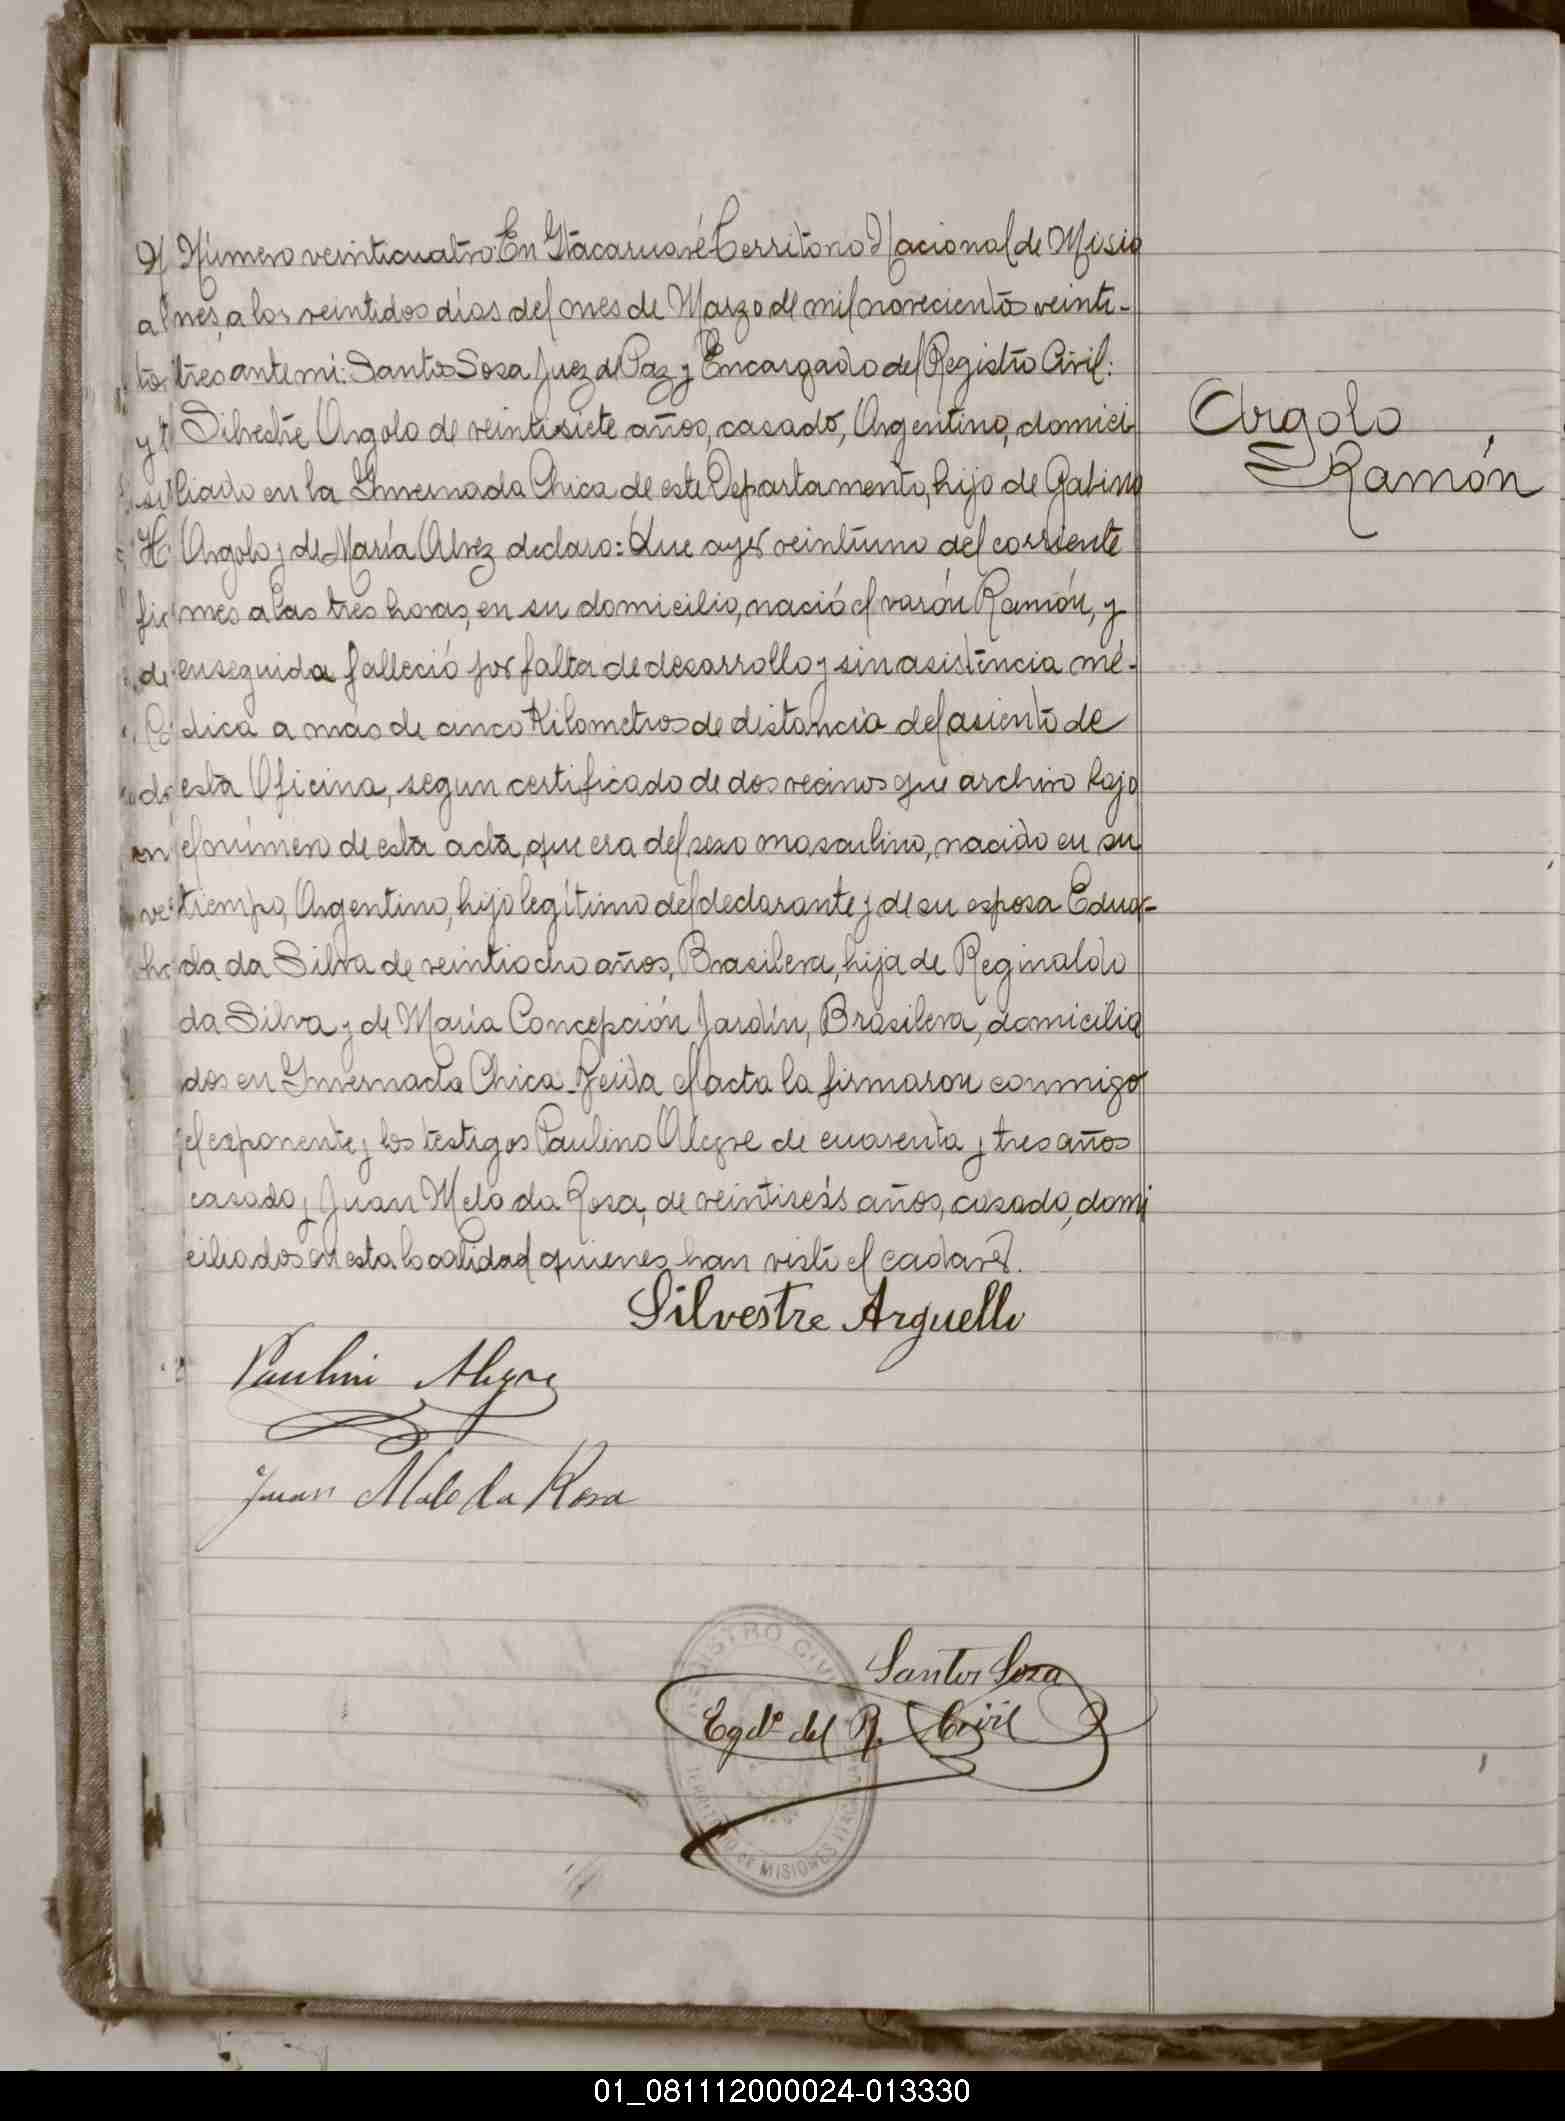 Número veinticuatro. En Itacaruaré Territorio Nacional de Misio
nes, a los veintidos días del mes de Marzo de mil novecientos veinti-
tres ante mi: Santos Sosa Juez de Paz y Encargado del Registro Civil:
Silvestre Argolo de veintisiete años, casado, Argentino, domici-
liado en la Invernada Chica de este Departamento, hijo de Gabino
Argolo y de María Alvez declaro: Que ayer veintiuno del corriente
mes a las tres horas, en su domicilio, nació el varón Ramón, y
enseguida falleció por falta de desarrollo y sin asistencia mé-
dica a más de cinco Kilometros de distancia del asiento de
esta Oficina, segun certificado de dos vecinos que archivo bajo
el número de esta acta, que era del sexo masculino, nacido en su
tiempo, Argentino, hijo legítimo del declarante y de su esposa Eduar-
da da Silva de veintiocho años, Brasilera, hija de Reginaldo
da Silva y de María Concepción Jardín, Brasilera, domicilia
dos en Invernada Chica. Leida el acta la firmaron conmigo
el exponente y los testigos Paulino Alegre de cuarenta y tres años
casado y Juan Melo da Rosa, de veintiseis años, casado, domi
ciliados en esta localidad quienes han visto el cadaver.
Argolo
Ramón
Silvestre Arguello
Paulino Alegre
Juan Melo da Rosa
Santos Sosa
Egdo del R. Civil
REGISTRO CIVIL
TERRITORIO DE MISIONES
01_081112000024-013330